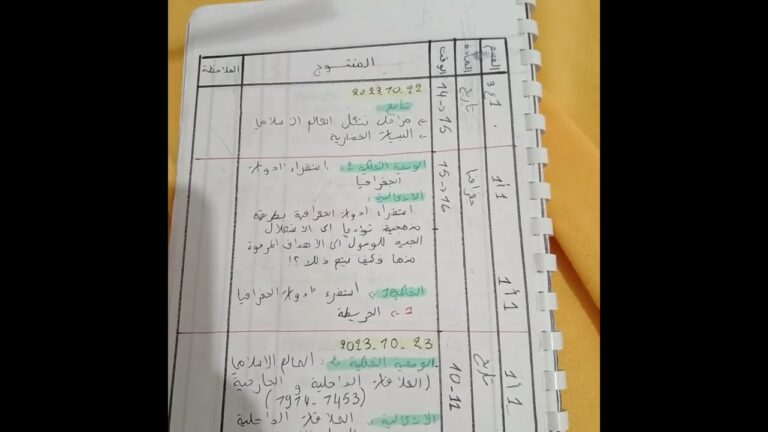 القسم المادة الوقت المنتوج الملاحظة
2023.10.22
1ع3 تاريخ 14→15
تابع
مراحل تشكل العالم الاسلامي
البنية الحضارية
1أ1 جغرافيا 15→16
الوضعية التعلمية 2: استقراء أدوات
الجغرافيا
الاشكالية:
استقراء أدوات الجغرافية بطريقة
منهجية تؤدي الى الاستغلال
الجيد للوصول الى الأهداف المرجوة
منها وكيف يتم ذلك ؟!
1أ1
استقراء أدوات الجغرافيا
1- الخريطة
2023.10.23
1أ1 تاريخ 10-11
الوضعية التعلمية 2: العالم الاسلامي
(العلاقات الداخلية و الخارجية
(1914-1453)
الاشكالية: العلاقات الداخلية